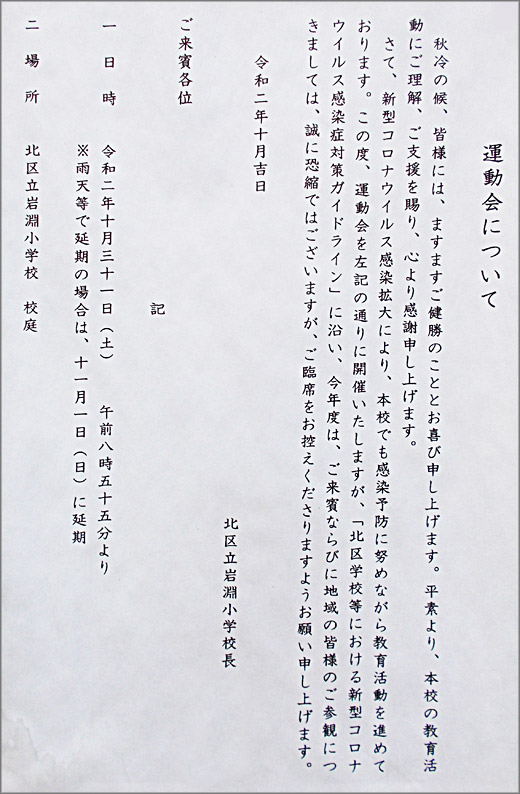 運動会について
秋冷の候、皆様には、ますますご健勝のこととお喜び申し上げます。平素より、本校の教育活
動にご理解、ご支援を賜り、心より感謝申し上げます。
さて、新型コロナウイルス感染拡大により、本校でも感染予防に努めながら教育活動を進めて
おります。この度、運動会を左記の通りに開催いたしますが、「北区学校等における新型コロナ
ウイルス感染症対策ガイドライン」に沿い、今年度は、ご来賓ならびに地域の皆様のご参観につ
きましては、誠に恐縮ではございますが、ご臨席をお控えくださりますようお願い申し上げます。
令和二年十月吉日
北区立岩淵小学校長
ご来賓各位
記
一 日 時 令和二年十月三十一日（土） 午前八時五十五分より
※雨天等で延期の場合は、十一月一日（日）に延期
二 場 所 北区立岩淵小学校 校庭